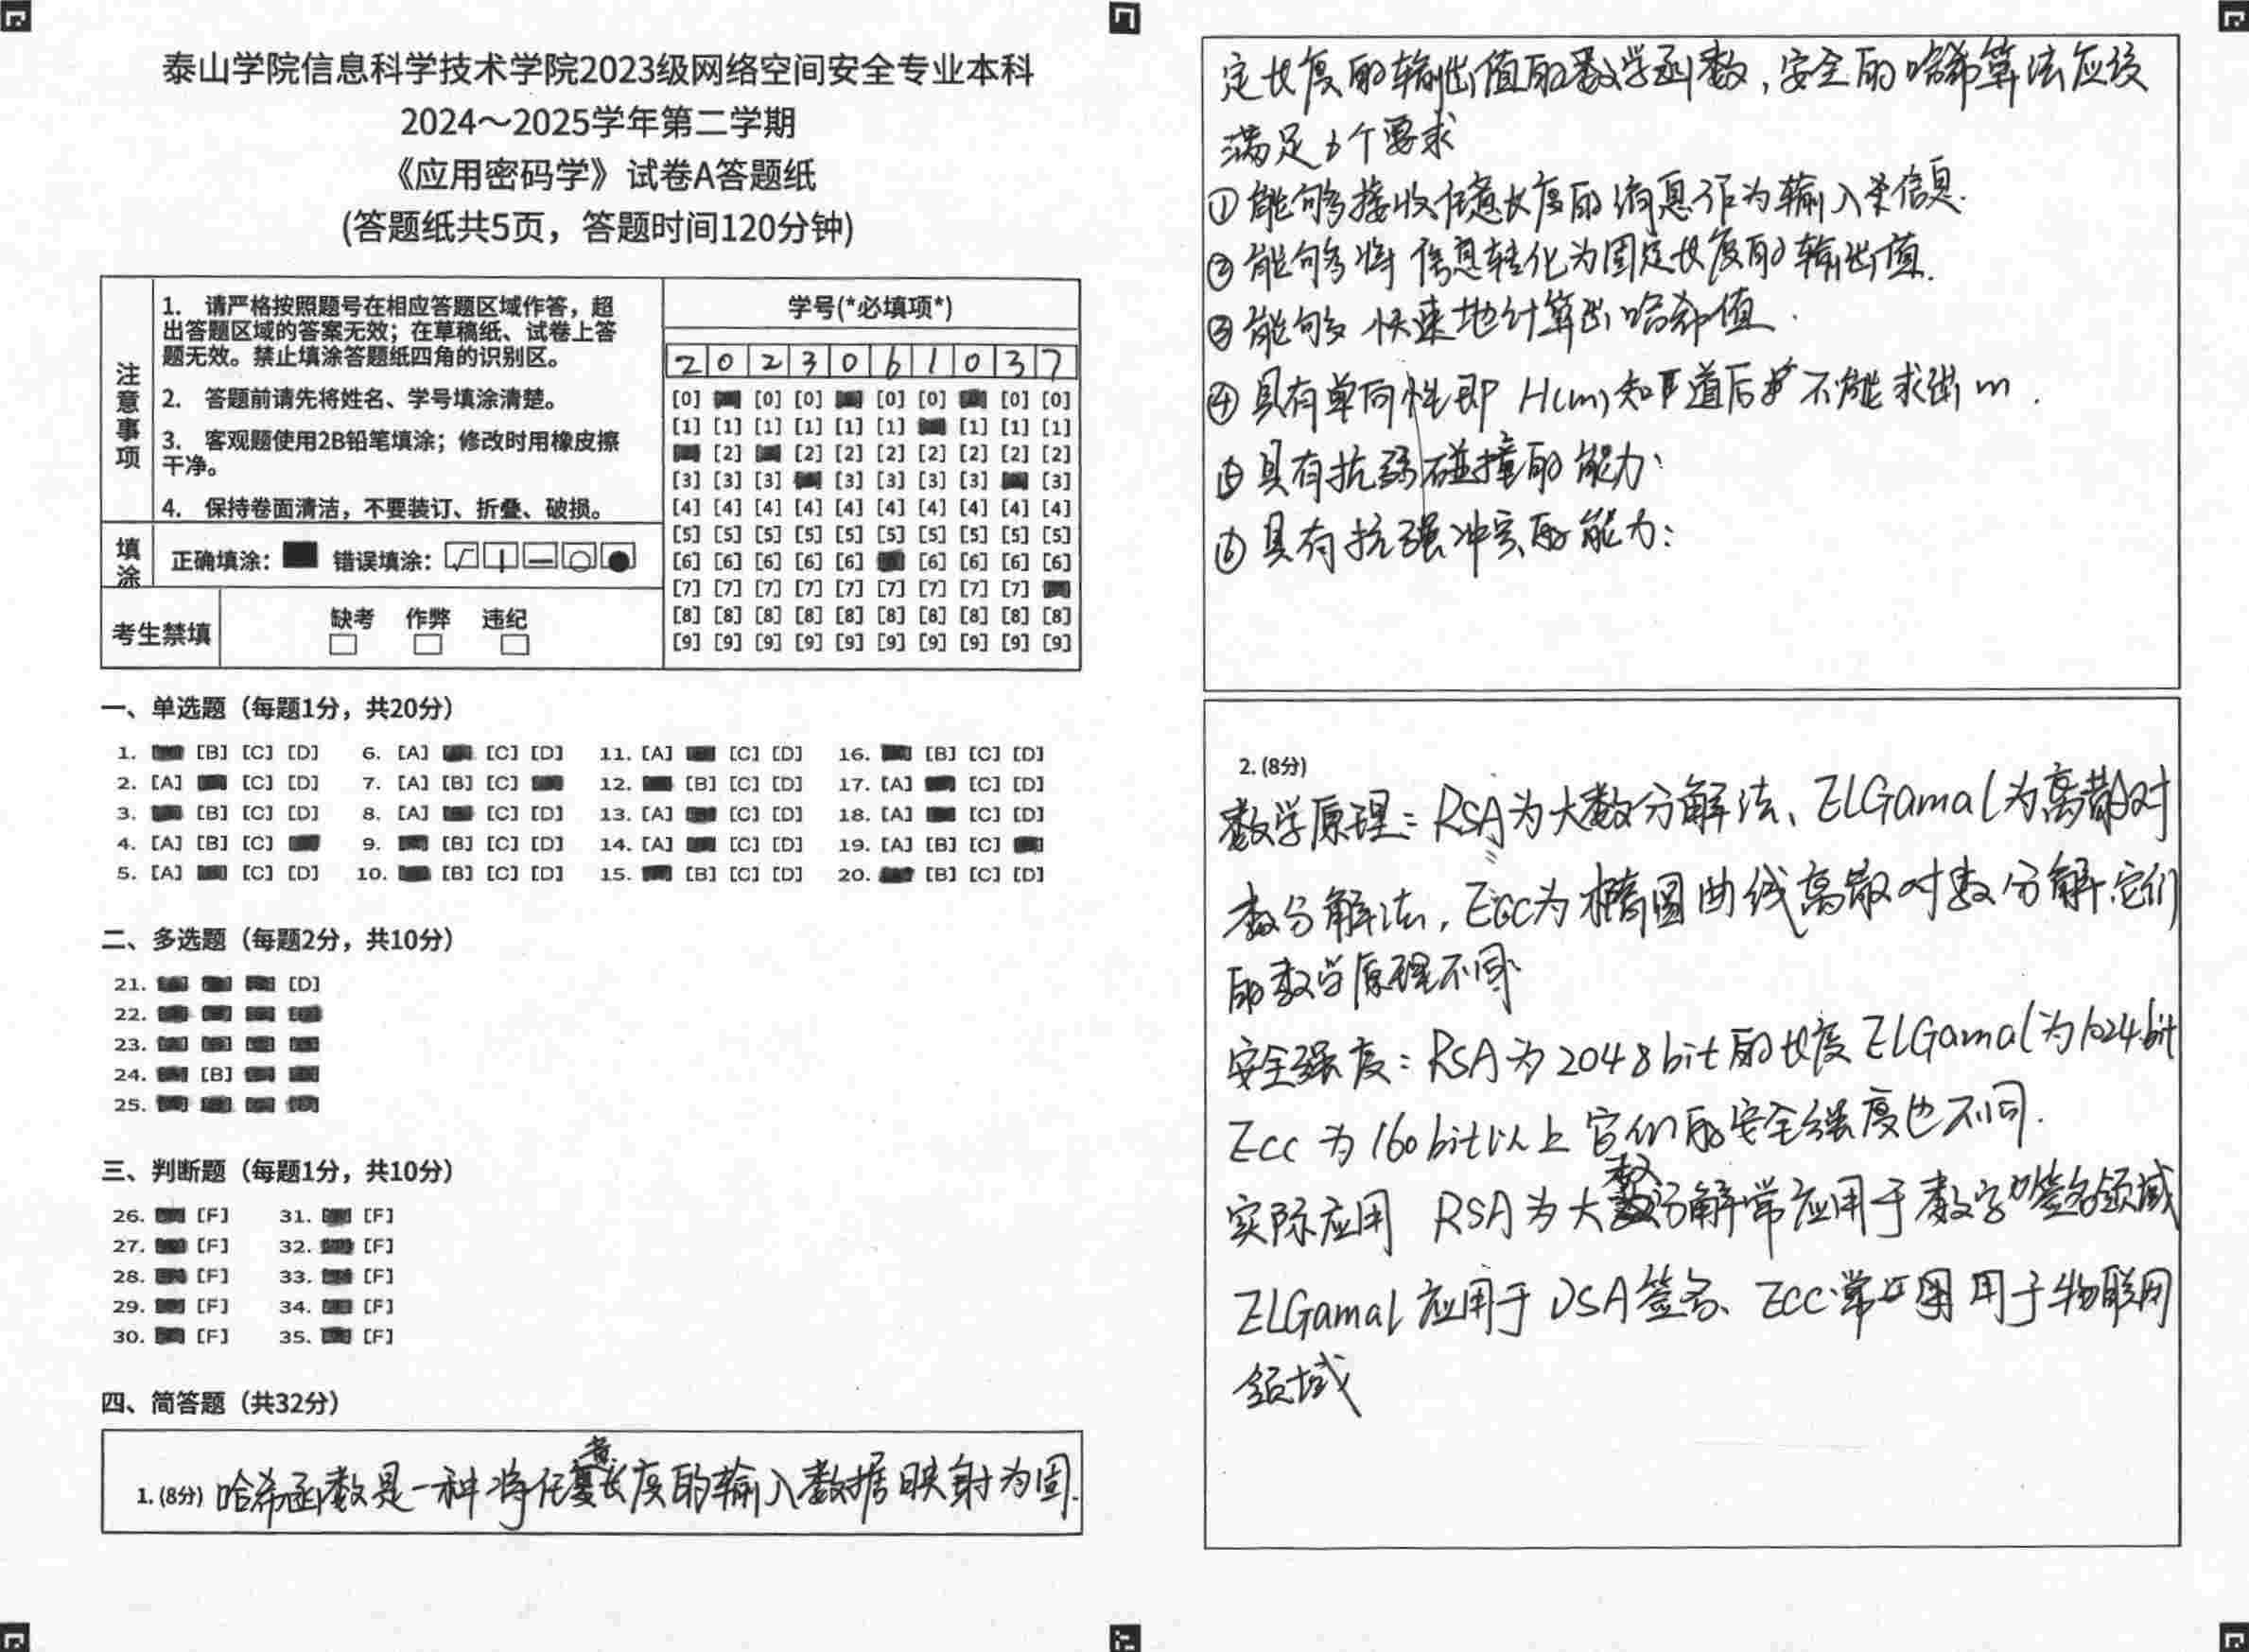 泰山学院信息科学技术学院2023级网络空间安全专业本科
2024～2025学年第二学期
《应用密码学》试卷A答题纸
(答题纸共5页，答题时间120分钟)
注意事项
1. 请严格按照题号在相应答题区域作答，超
出答题区域的答案无效；在草稿纸、试卷上答
题无效。禁止填涂答题纸四角的识别区。
2. 答题前请先将姓名、学号填涂清楚。
3. 客观题使用2B铅笔填涂；修改时用橡皮擦
干净。
4. 保持卷面清洁，不要装订、折叠、破损。
填涂 正确填涂： 错误填涂：
考生禁填 缺考 作弊 违纪
学号(*必填项*)
2 0 2 3 0 6 1 0 3 7
[0] [0] [0] [0] [0] [0] [0]
[1] [1] [1] [1] [1] [1] [1] [1] [1]
[2] [2] [2] [2] [2] [2] [2] [2]
[3] [3] [3] [3] [3] [3] [3] [3]
[4] [4] [4] [4] [4] [4] [4] [4] [4] [4]
[5] [5] [5] [5] [5] [5] [5] [5] [5] [5]
[6] [6] [6] [6] [6] [6] [6] [6] [6]
[7] [7] [7] [7] [7] [7] [7] [7] [7]
[8] [8] [8] [8] [8] [8] [8] [8] [8] [8]
[9] [9] [9] [9] [9] [9] [9] [9] [9] [9]
一、单选题（每题1分，共20分）
1. [B] [C] [D] 6. [A] [C] [D] 11. [A] [C] [D] 16. [B] [C] [D]
2. [A] [C] [D] 7. [A] [B] [C] 12. [B] [C] [D] 17. [A] [C] [D]
3. [B] [C] [D] 8. [A] [C] [D] 13. [A] [C] [D] 18. [A] [C] [D]
4. [A] [B] [C] 9. [B] [C] [D] 14. [A] [C] [D] 19. [A] [B] [C]
5. [A] [C] [D] 10. [B] [C] [D] 15. [B] [C] [D] 20. [B] [C] [D]
二、多选题（每题2分，共10分）
21. [D]
22.
23.
24. [B]
25.
三、判断题（每题1分，共10分）
26. [F] 31. [F]
27. [F] 32. [F]
28. [F] 33. [F]
29. [F] 34. [F]
30. [F] 35. [F]
四、简答题（共32分）
1. (8分) 哈希函数是一种将任意长度的输入数据映射为固
定长度的输出值的数学函数，安全的哈希算法应该
满足6个要求
①能够接收任意长度的消息作为输入类信息.
②能够将信息转化为固定长度的输出值.
③能够快速地计算出哈希值.
④具有单向性即H(m)知道后 不能求出m.
⑤具有抗弱碰撞的能力;
⑥具有抗强冲突的能力;
2. (8分)
数学原理: RSA为大数分解法、ELGamal为离散对
数分解法, ECC为椭圆曲线离散对数分解.它们
的数学原理不同.
安全强度: RSA为2048bit的长度 ELGamal为1024bit
ECC为160bit以上 它们的安全强度也不同.
实际应用 RSA为大数分解常应用于数字签名领域
ELGamal应用于DSA签名、ECC常应用于物联网
领域